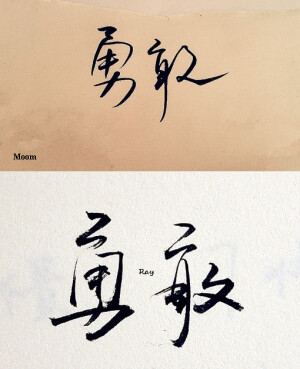 勇敢
Moom
勇敢
Ray